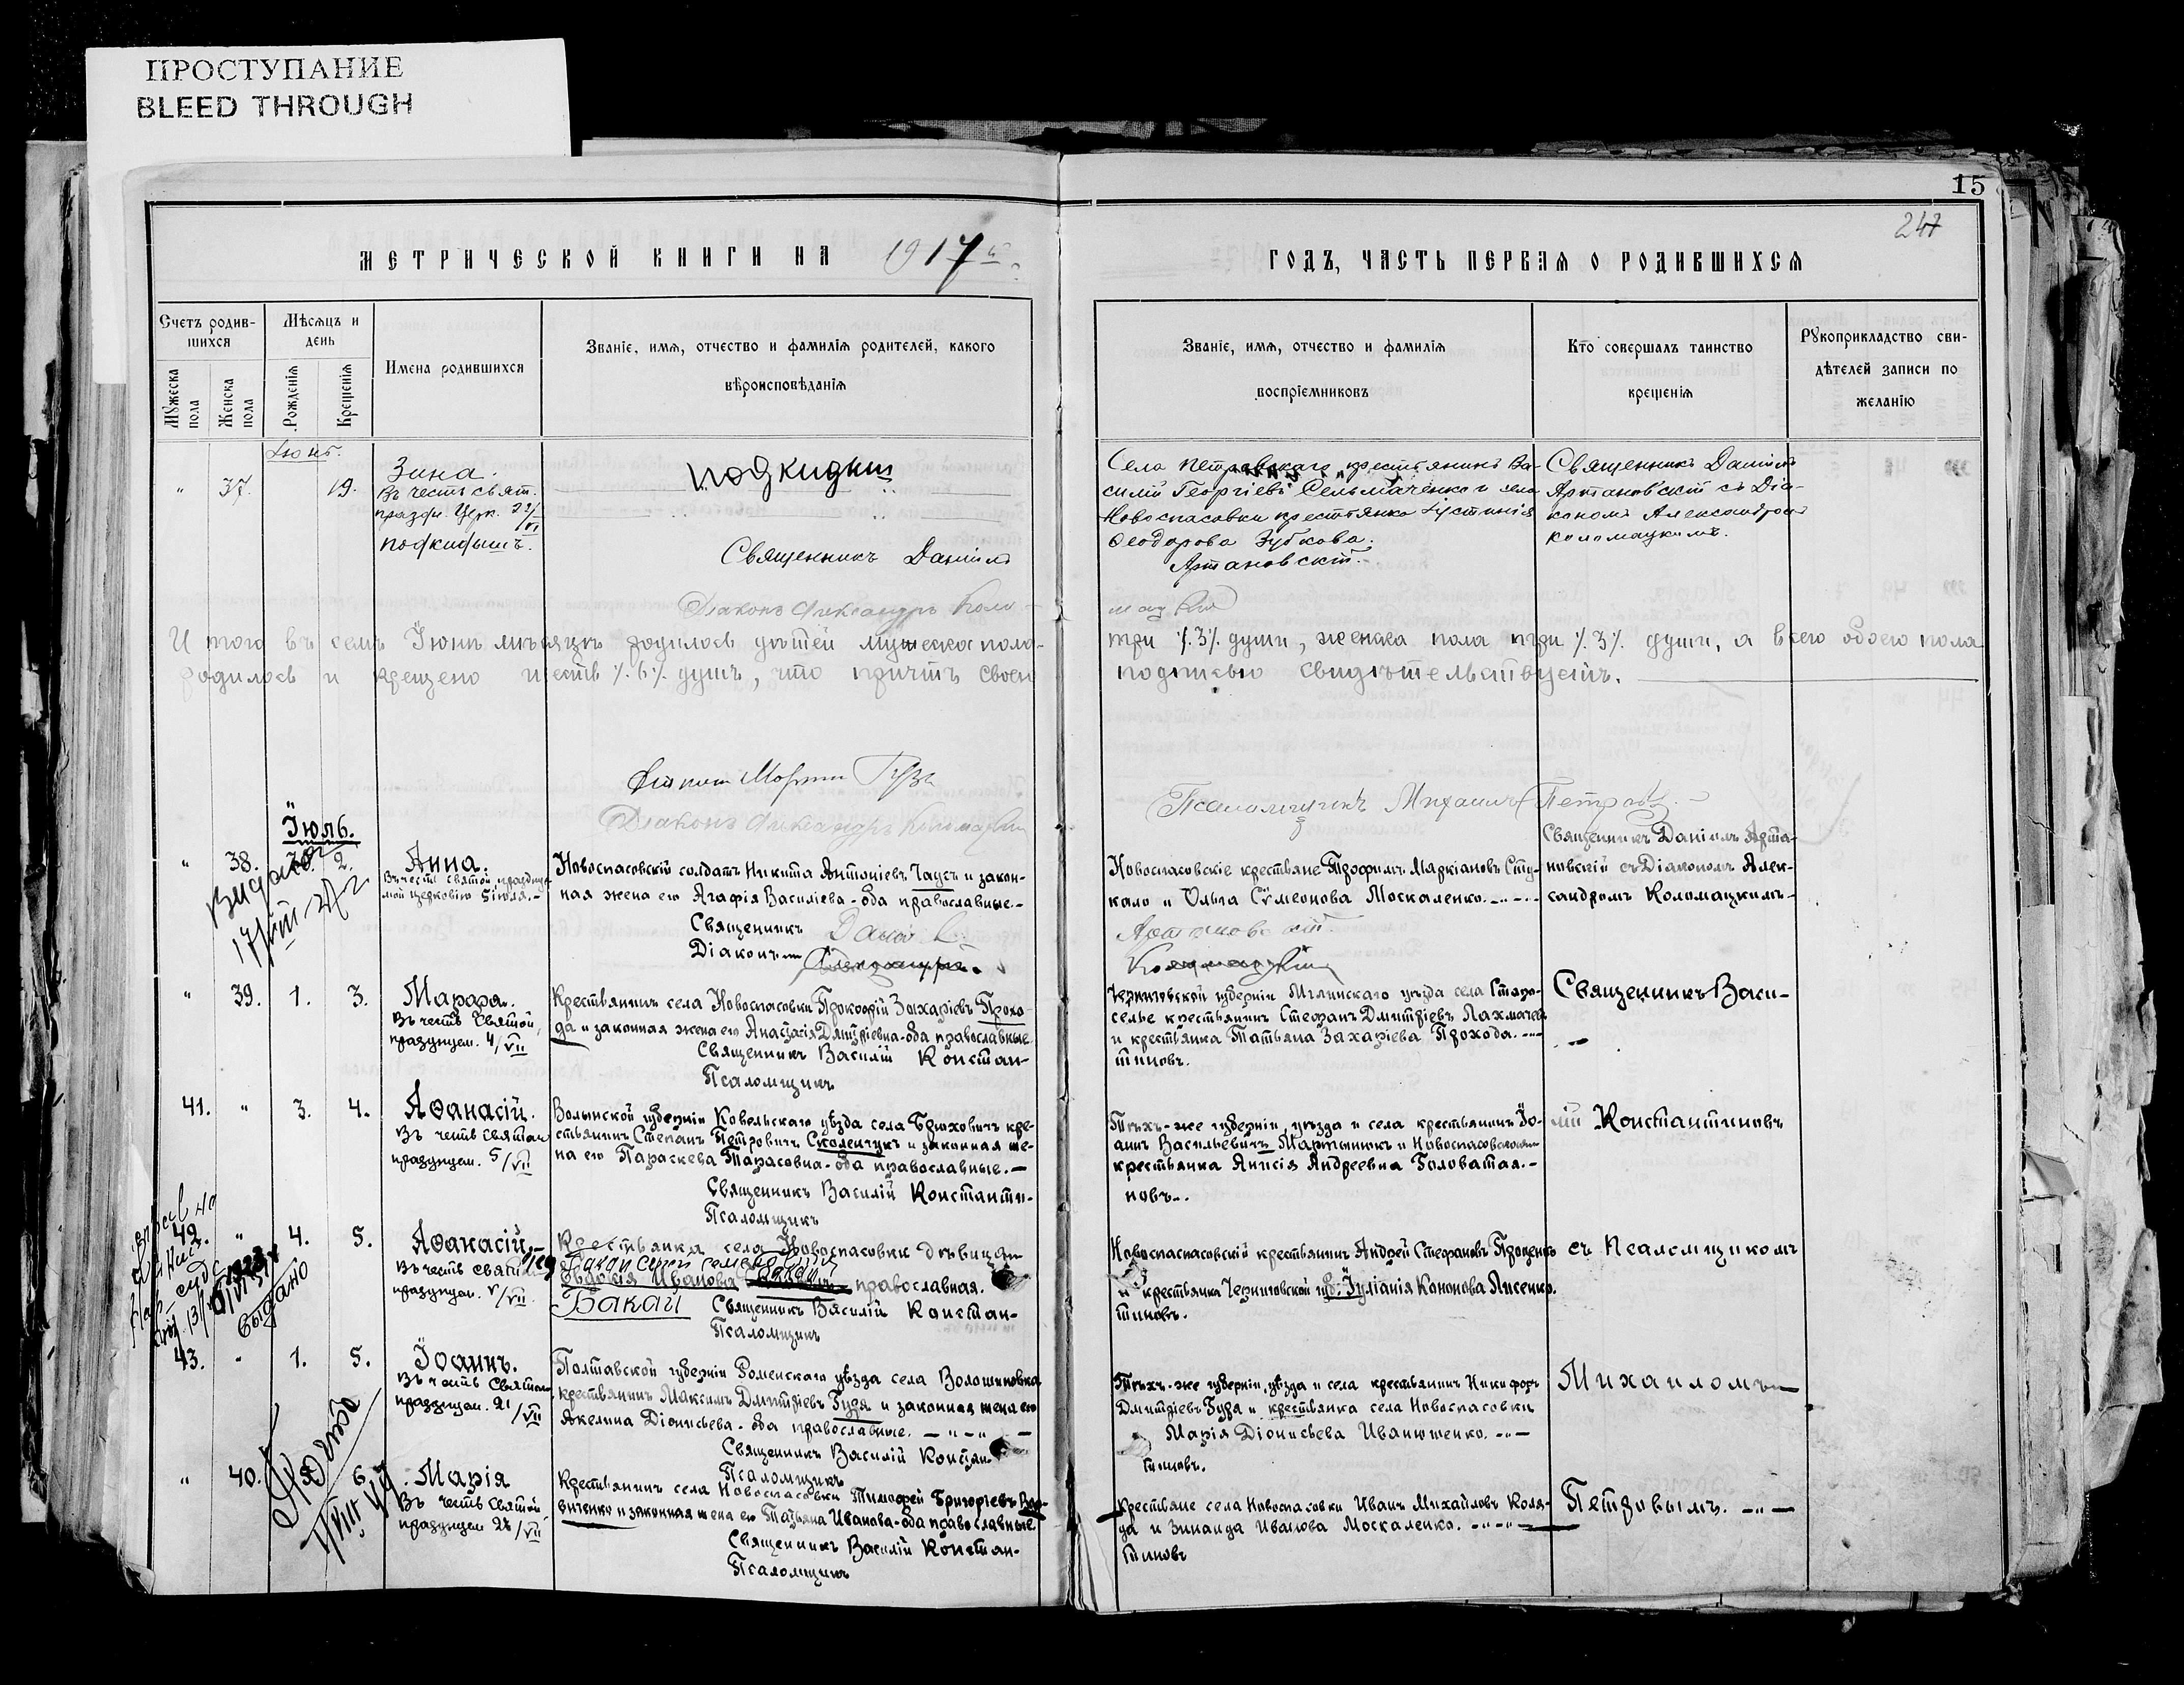 ПРОСТУПАНИЕ
BLEED THROUGH
15
247
МЕТРИЧЕСКОЙ КНИГИ НА 1917 г.
ГОДЪ, ЧАСТЬ ПЕРВАЯ О РОДИВШИХСЯ
Счетъ родив-
шихся
Мужеска
пола
Женска
пола
Мѣсяцъ и
день
Рожденія
Крещенія
Имена родившихся
Званіе, имя, отчество и фамилія родителей, какого
вѣроисповѣданія
Званіе, имя, отчество и фамилія
воспріемниковъ
Кто совершалъ таинство
крещенія
Рукоприкладство сви-
дѣтелей записи по
желанію
Іюнь.
" 37. 19.
Зина.
Въ честь свят.
празд. Церк.
подкидышъ.
подкидыш
Священникъ Даніилъ
Діаконъ Александръ Коло-
Села Петровскаго крестьянинъ Ва-
силій Георгіевъ Сельмаченко и села
Новоспасовки крестьянка Іустинія
Ѳеодорова Зубкова.
Артановскій.
мацкій
Священникъ Даніилъ
Артановскій съ Діа-
кономъ Александромъ
Коломацкимъ.
Итого въ семъ Іюнѣ мѣсяцѣ родилось дѣтей мужеска пола-
три /.3/. души, женска пола три /.3/. души, а всего обоего пола
родилось и крещено шесть /.6/. душъ, что причтъ своею
подписью свидѣтельствуетъ.
Діаконъ Александръ Коломацкій
Псаломщикъ Михаилъ Петровъ.
Іюль.
" 38. 2.
Анна.
Въ честь святой праздну-
мой церковію 5 іюля.-
Новоспасовскій солдатъ Никита Антоніевъ Чаусъ и закон-
ная жена его Агафія Василіева - оба православные.-
Священникъ Даніилъ
Діаконъ Александръ
Новоспасовскіе крестьяне Трофимъ Маркіановъ Сту-
кало и Ольга Сѵмеонова Москаленко.
Артановскій.
Коломацкій
Священникъ Даніилъ Арта-
новскій съ Діакономъ Алек-
сандромъ Коломацкимъ-
" 39. 1. 3.
Марѳа.
Въ честь Святой,
празднуем. 4/VII
Крестьянинъ села Новоспасовки Прокофій Захаріевъ Прохо-
да и законная жена его Анастасія Дмитріевна - оба православные
Священникъ Василій Констан-
Псаломщикъ
Черниговской губерніи Мглинскаго уѣзда села Старо-
селье крестьянинъ Стефанъ Дмитріевъ Лахмачев
и крестьянка Татьяна Захаріева Прохода.
тиновъ.
Священникъ Васи-
41. " 3. 4.
Аѳанасій.
Въ честь святаго
празднуем. 5/VII
Волынской губерніи Ковельскаго уѣзда села Брюховичъ кре-
стьянинъ Степанъ Петровичъ Смоленчукъ и законная же-
на его Параскева Тарасовна - оба православные.-
Священникъ Василій Константи-
Псаломщикъ
Тѣхъ-же губерніи, уѣзда и села крестьянинъ Іо-
аннъ Васильевичъ Мартынюкъ и Новоспасовская
крестьянка Анисія Андреевна Головатая.-
новъ.
лій Константиновъ
42. " 4. 5.
Аѳанасій.-
Въ честь святаго
празднуем. V/VII
выдано
Крестьянка села Новоспасовки дѣвица
Евдокія Иванова православная.
Бакай Священникъ Василій Констан-
Псаломщикъ
Новоспаспасовскій крестьянинъ Андрей Стефановъ Проценко
и крестьянка Черниговской губ. Іуліанія Кононова Лисенко.
тиновъ.
съ Псаломщикомъ
43. " 1. 5.
Іоаннъ.
Въ честь Святаго
празднуем. 21/VII
Полтавской губерніи Роменскаго уѣзда села Волошиновка
крестьянинъ Максимъ Дмитріевъ Гудя и законная жена его
Акелина Діонисьева - оба православные.
Священникъ Василій Констан-
Псаломщикъ
Тѣхъ-же губерніи, уѣзда и села крестьянинъ Никифоръ
Дмитріевъ Гудя и крестьянка села Новоспасовки
Марія Діонисьева Иванюшенко.
тиновъ.
Михаиломъ
" 40. 6.
Марія
Въ честь Святой
празднуем 22/VII
Крестьянинъ села Новоспасовки Тимофей Григоріевъ
виченко и законная жена его Татьяна Иванова - оба православные
Священникъ Василій Констан-
Псаломщикъ
Крестьяне села Новоспасовки Иванъ Михайловъ Коля-
да и Зинаида Иванова Москаленко.
тиновъ
Петровымъ.